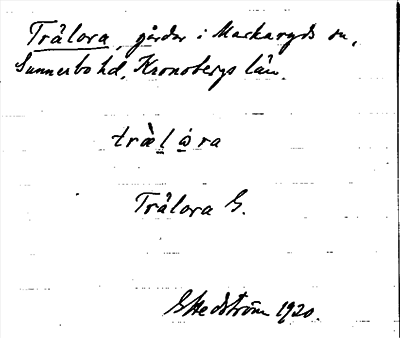 Trälora, gårdar i Markaryds sn,
Sunnerbo hd, Kronobergs län.
træ̀låra
Trälora G.
Hedström 1920.